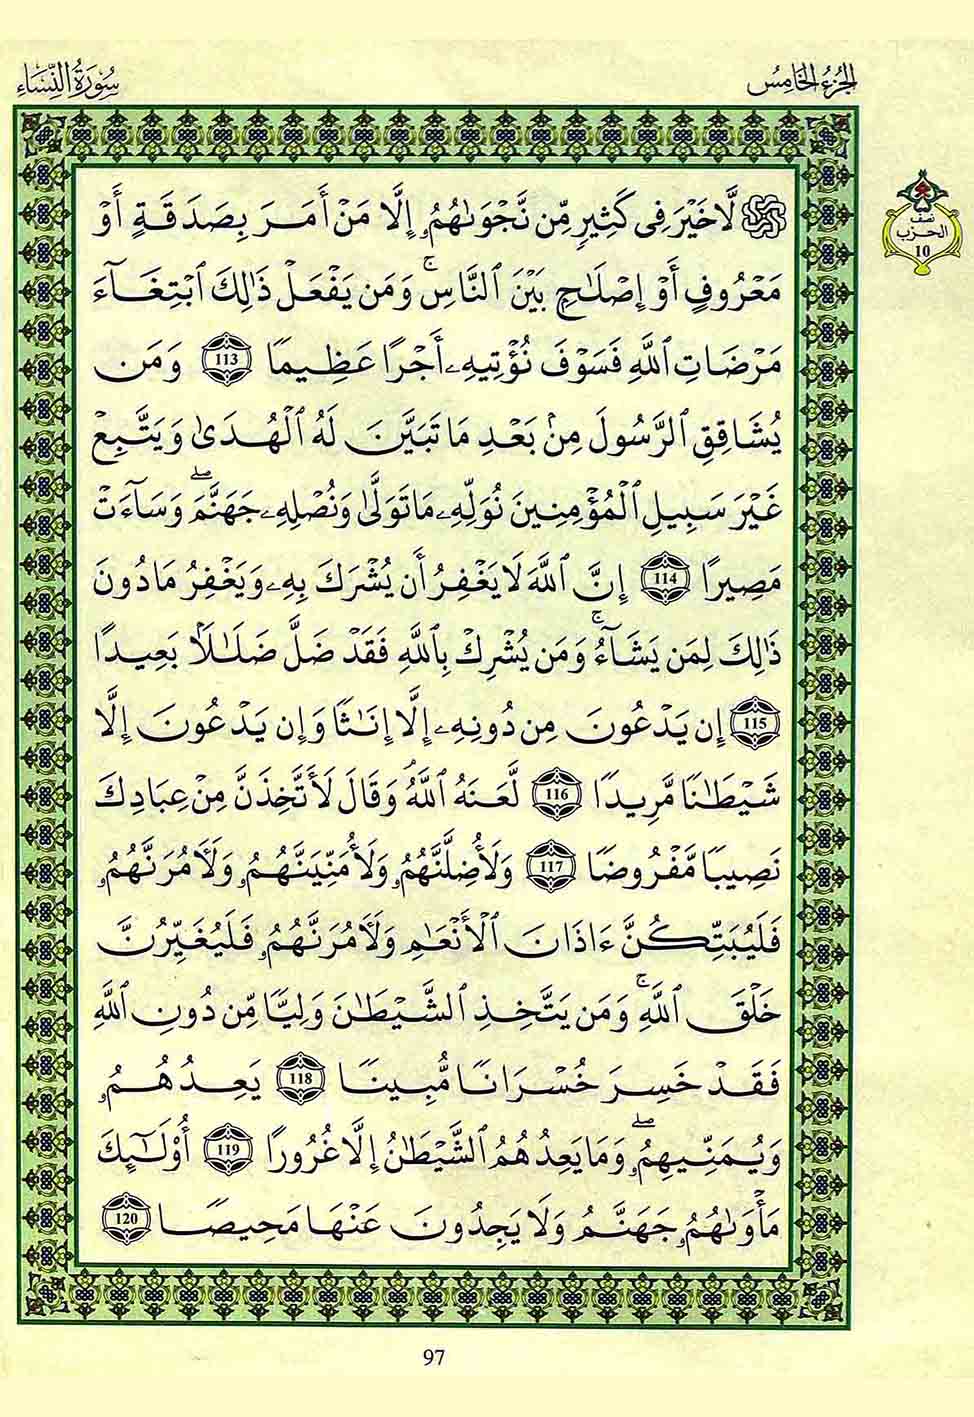 الجزء الخامس
سورة النساء
نصف
الحزب
10
لَّا خَيْرَ فِى كَثِيرٍ مِّن نَّجْوَىٰهُمُۥٓ إِلَّا مَنْ أَمَرَ بِصَدَقَةٍ أَوْ
مَعْرُوفٍ أَوْ إِصْلَٰحٍۭ بَيْنَ ٱلنَّاسِ ۚ وَمَن يَفْعَلْ ذَٰلِكَ ٱبْتِغَآءَ
مَرْضَاتِ ٱللَّهِ فَسَوْفَ نُؤْتِيهِۦ أَجْرًا عَظِيمًا 113 وَمَن
يُشَاقِقِ ٱلرَّسُولَ مِنۢ بَعْدِ مَا تَبَيَّنَ لَهُ ٱلْهُدَىٰ وَيَتَّبِعْ
غَيْرَ سَبِيلِ ٱلْمُؤْمِنِينَ نُوَلِّهِۦ مَا تَوَلَّىٰ وَنُصْلِهِۦ جَهَنَّمَ ۖ وَسَآءَتْ
مَصِيرًا 114 إِنَّ ٱللَّهَ لَا يَغْفِرُ أَن يُشْرَكَ بِهِۦ وَيَغْفِرُ مَا دُونَ
ذَٰلِكَ لِمَن يَشَآءُ ۚ وَمَن يُشْرِكْ بِٱللَّهِ فَقَدْ ضَلَّ ضَلَٰلًۢا بَعِيدًا
115 إِن يَدْعُونَ مِن دُونِهِۦٓ إِلَّآ إِنَٰثًا وَإِن يَدْعُونَ إِلَّا
شَيْطَٰنًا مَّرِيدًا 116 لَّعَنَهُ ٱللَّهُ ۘ وَقَالَ لَأَتَّخِذَنَّ مِنْ عِبَادِكَ
نَصِيبًا مَّفْرُوضًا 117 وَلَأُضِلَّنَّهُمُۥ وَلَأُمَنِّيَنَّهُمُۥ وَلَءَامُرَنَّهُمُۥ
فَلَيُبَتِّكُنَّ ءَاذَانَ ٱلْأَنْعَٰمِ وَلَءَامُرَنَّهُمُۥ فَلَيُغَيِّرُنَّ
خَلْقَ ٱللَّهِ ۚ وَمَن يَتَّخِذِ ٱلشَّيْطَٰنَ وَلِيًّا مِّن دُونِ ٱللَّهِ
فَقَدْ خَسِرَ خُسْرَانًا مُّبِينًا 118 يَعِدُهُمُۥ
وَيُمَنِّيهِمُۥ ۖ وَمَا يَعِدُهُمُ ٱلشَّيْطَٰنُ إِلَّا غُرُورًا 119 أُوْلَٰٓئِكَ
مَأْوَىٰهُمُۥ جَهَنَّمُ وَلَا يَجِدُونَ عَنْهَا مَحِيصًا 120
97